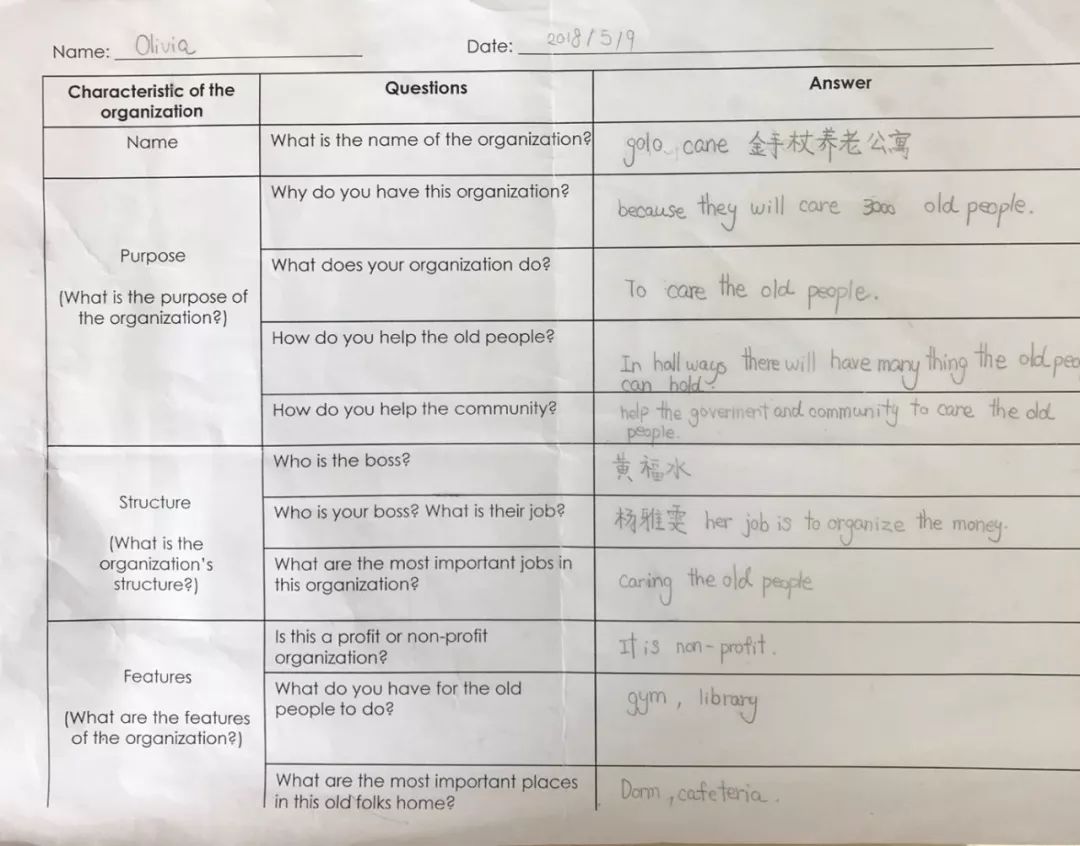 Name: Olivia
Date: 2018/5/9
Characteristic of the
organization
Questions
Answer
Name
What is the name of the organization?
golo cane 金手杖养老公寓
Purpose
(What is the purpose of
the organization?)
Why do you have this organization?
because they will care 3000 old people.
What does your organization do?
To care the old people.
How do you help the old people?
In hall ways there will have many thing the old peo
can hold.
How do you help the community?
help the goverinent and community to care the old
people.
Structure
(What is the
organization's
structure?)
Who is the boss?
黄福水
Who is your boss? What is their job?
杨雅雯 her job is to organize the money.
What are the most important jobs in
this organization?
Caring the old people
Features
(What are the features
of the organization?)
Is this a profit or non-profit
organization?
It is non-profit.
What do you have for the old
people to do?
gym, library
What are the most important places
in this old folks home?
Dorm, cafeteria.